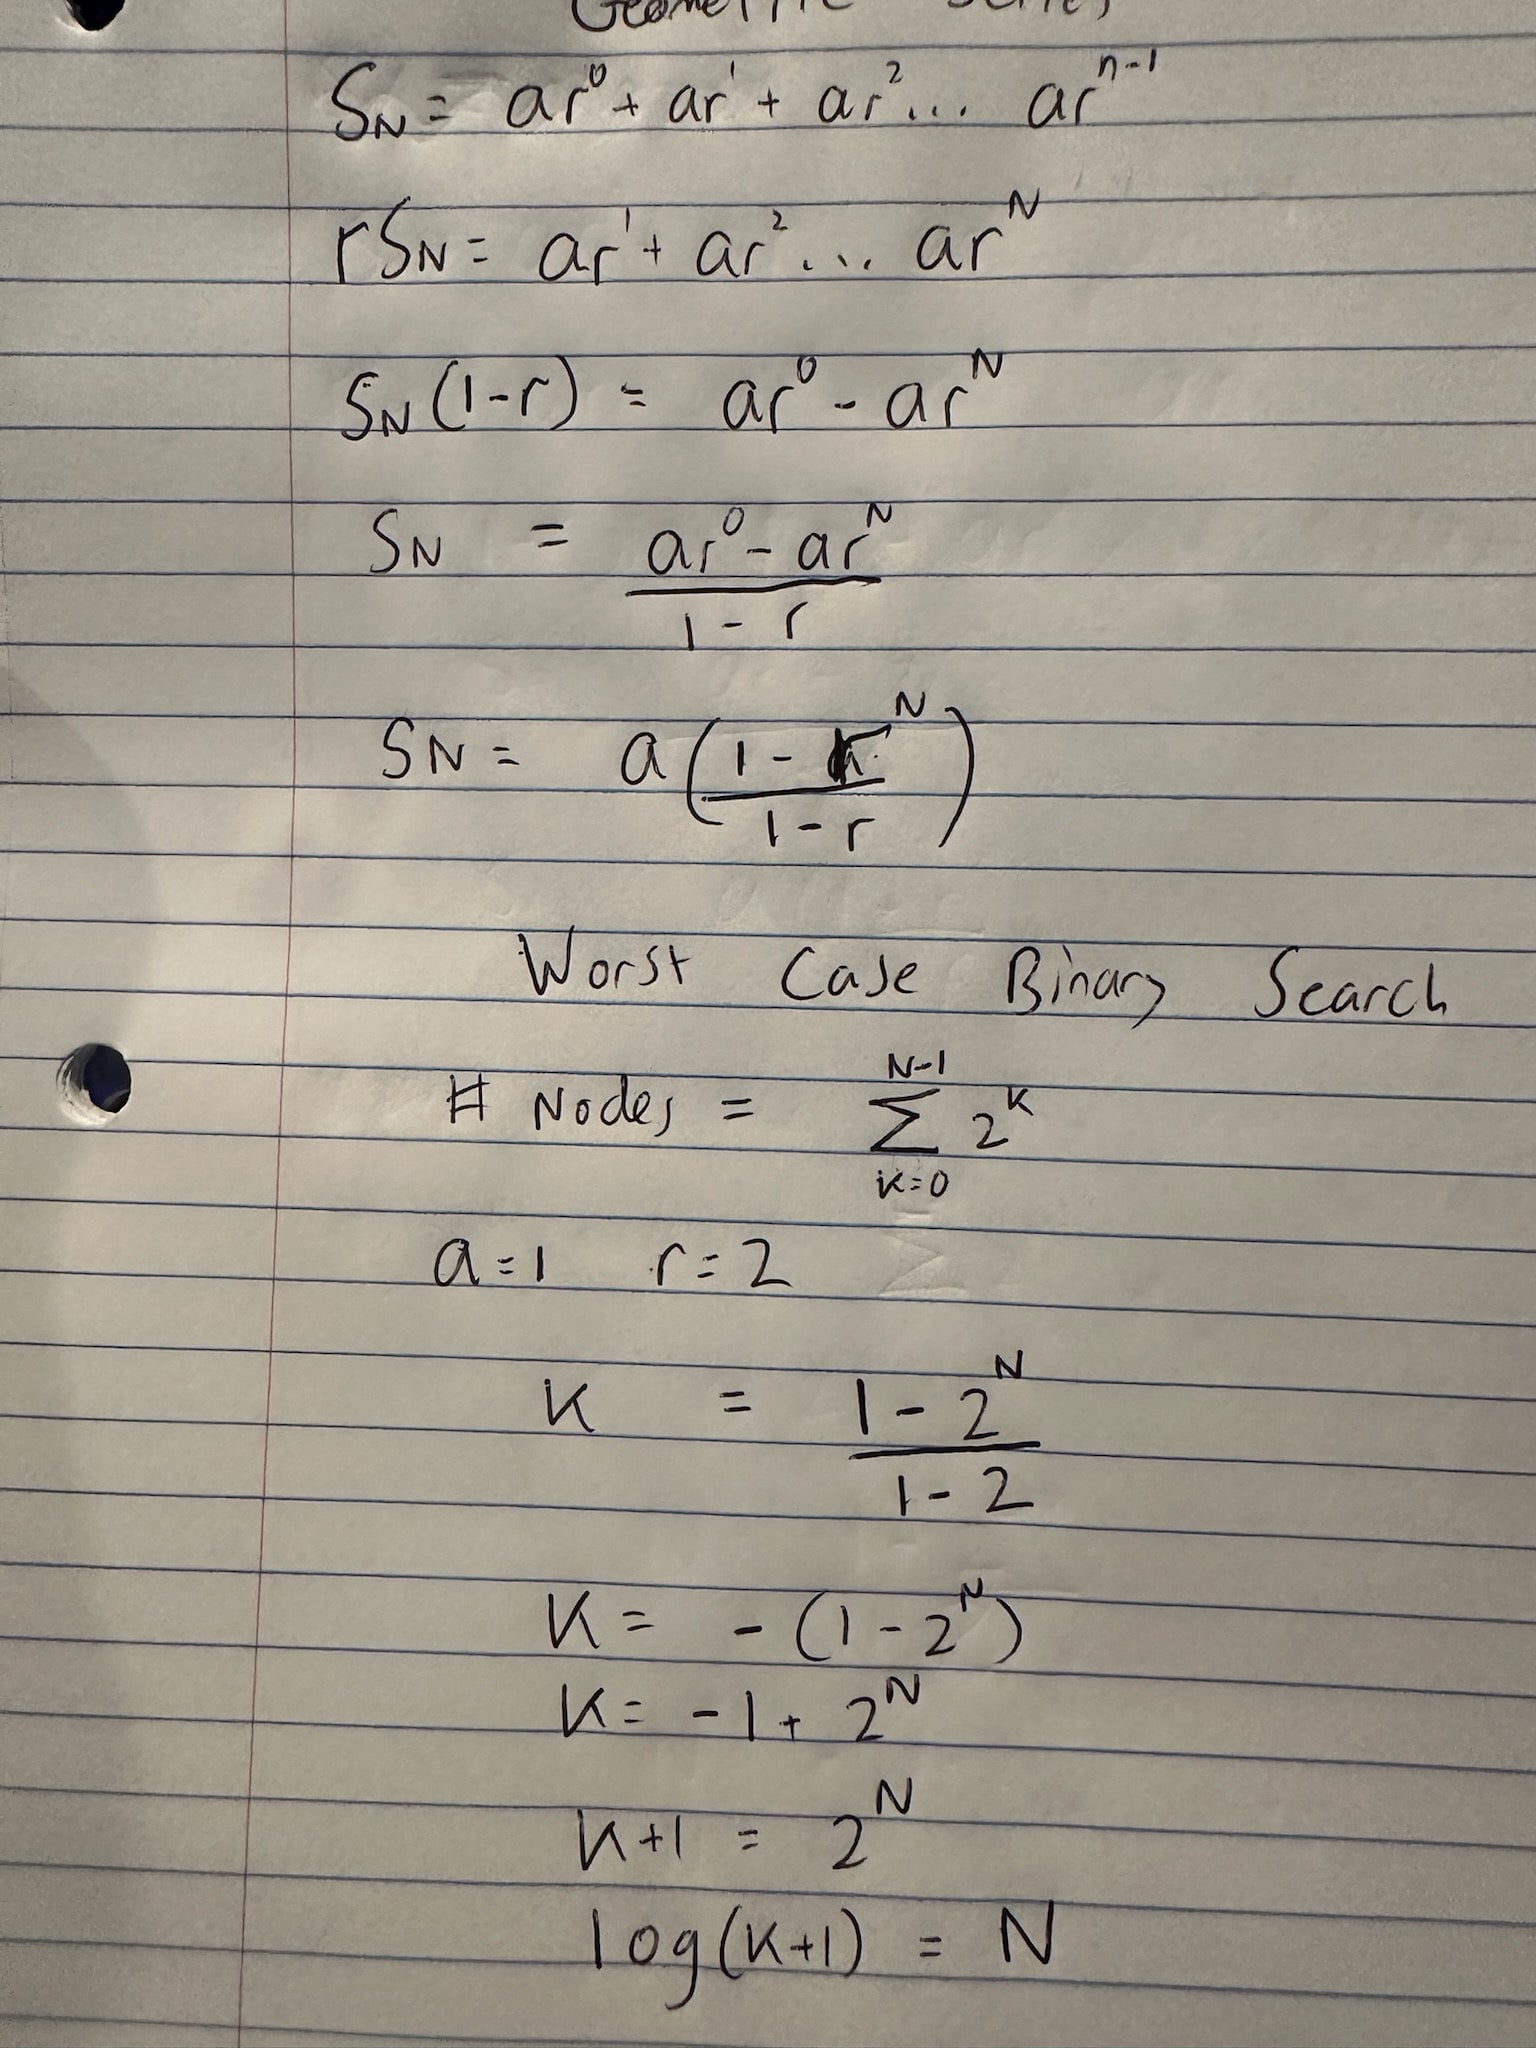 Geometric Series
S_N = ar^0 + ar^1 + ar^2 ... ar^(n-1)
rS_N = ar^1 + ar^2 ... ar^N
S_N (1-r) = ar^0 - ar^N
S_N = (ar^0 - ar^N)/(1 - r)
S_N = a((1 - r^N)/(1 - r))
Worst Case Binary Search
# Nodes = ∑_(k=0)^(N-1) 2^k
a=1 r=2
K = (1 - 2^N)/(1 - 2)
K = - (1 - 2^N)
K = -1 + 2^N
K+1 = 2^N
log(K+1) = N